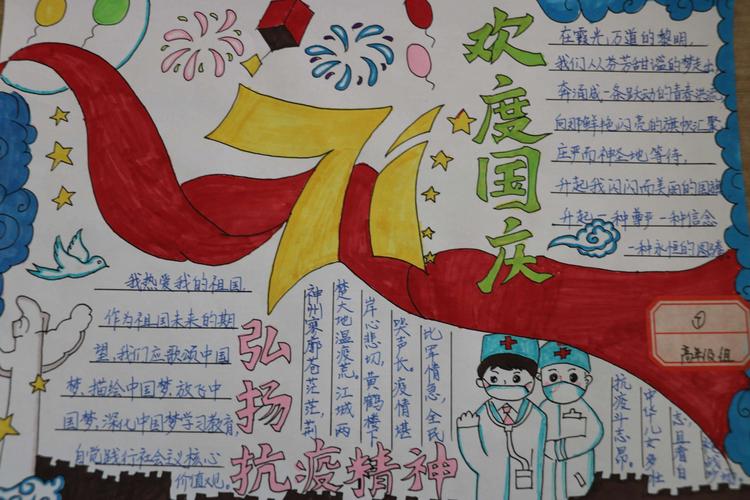 欢度国庆
71
在霞光万道的黎明,
我们从芬芳甜谧的梦走出
奔涌成一条跃动的青春洪流
向那鲜艳闪亮的旗帜汇聚
庄严而神圣地等待,
升起我闪闪而美丽的国旗
升起一种尊严一种信念
一种永恒的图腾
我热爱我的祖国,
作为祖国未来的期
望,我们应歌颂中国
梦,描绘中国梦,放飞中
国梦,深化中国梦学习教育,
自觉践行社会主义核心
价值观。
弘扬
抗疫精神
神州寥廓苍茫茫,荆
楚大地温疫荒。江城两
岸心悲切,黄鹤楼下
哭声长。疫情堪
比军情急,全民
抗疫斗志昂。
中华儿女多壮
志,且看
①
高年级组